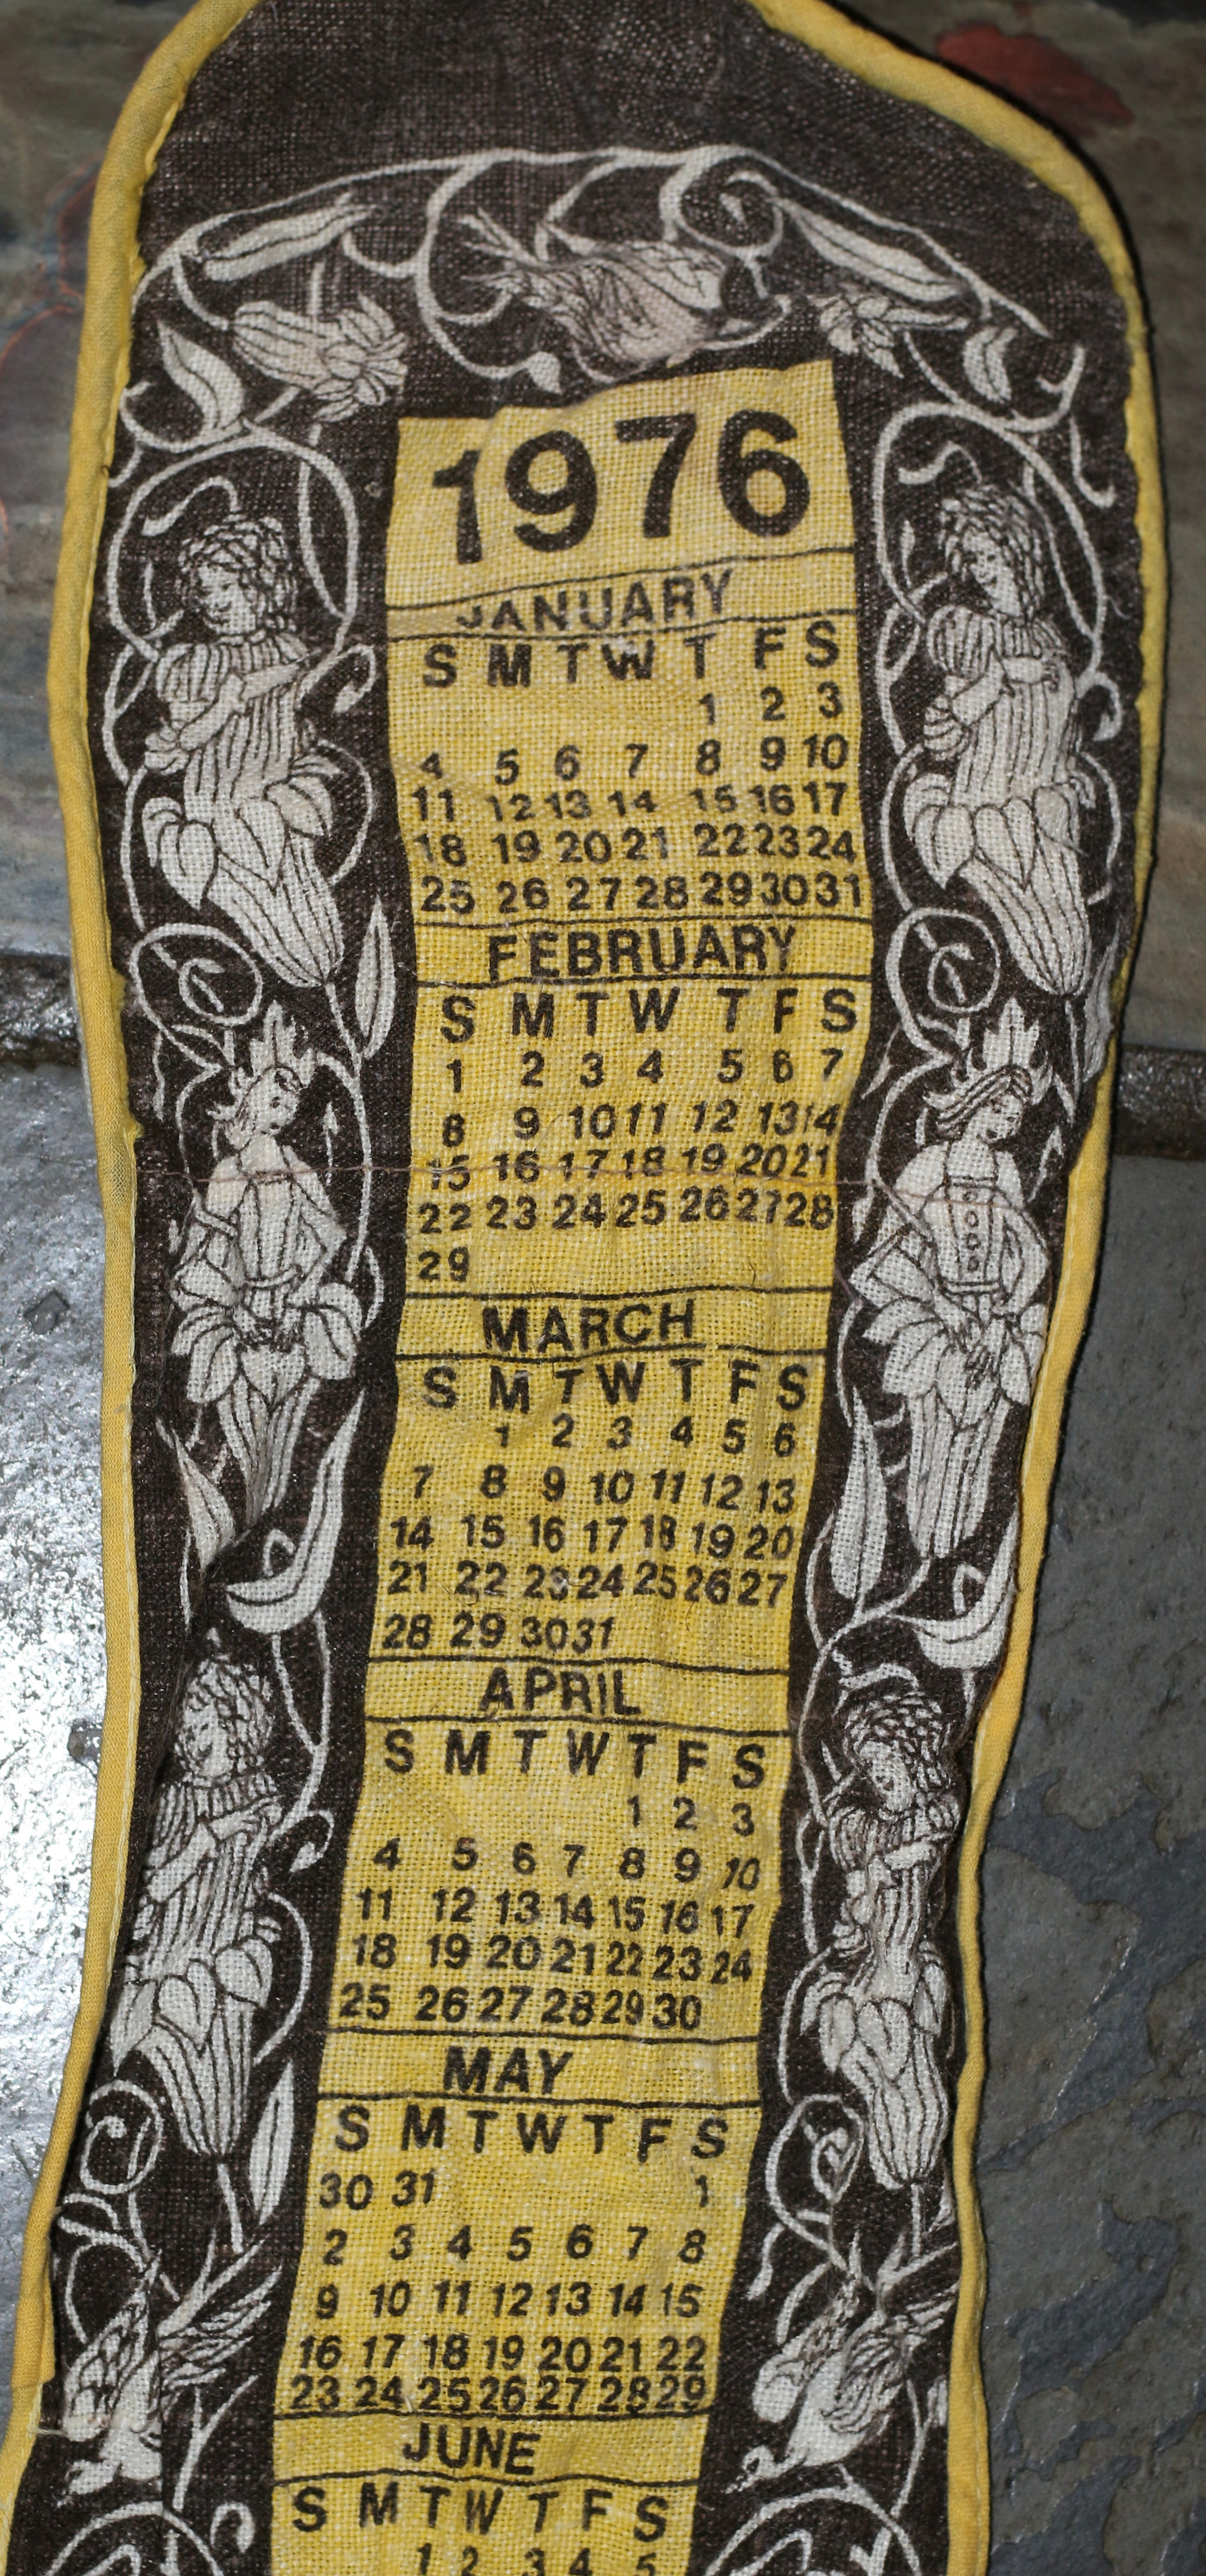 1976
JANUARY
S M T W T F S
1 2 3
4 5 6 7 8 9 10
11 12 13 14 15 16 17
18 19 20 21 22 23 24
25 26 27 28 29 30 31
FEBRUARY
S M T W T F S
1 2 3 4 5 6 7
8 9 10 11 12 13 14
15 16 17 18 19 20 21
22 23 24 25 26 27 28
29
MARCH
S M T W T F S
1 2 3 4 5 6
7 8 9 10 11 12 13
14 15 16 17 18 19 20
21 22 23 24 25 26 27
28 29 30 31
APRIL
S M T W T F S
1 2 3
4 5 6 7 8 9 10
11 12 13 14 15 16 17
18 19 20 21 22 23 24
25 26 27 28 29 30
MAY
S M T W T F S
30 31 1
2 3 4 5 6 7 8
9 10 11 12 13 14 15
16 17 18 19 20 21 22
23 24 25 26 27 28 29
JUNE
S M T W T F S
1 2 3 4 5